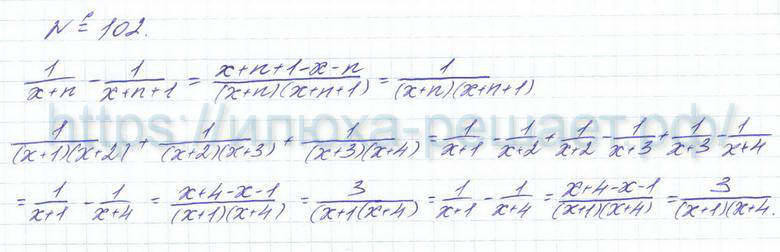 № 102.
1/(x+n) - 1/(x+n+1) = (x+n+1-x-n)/((x+n)(x+n+1)) = 1/((x+n)(x+n+1)
https://илюха-решает.рф/
1/((x+1)(x+2)) + 1/((x+2)(x+3)) + 1/((x+3)(x+4)) = 1/(x+1) - 1/(x+2) + 1/(x+2) - 1/(x+3) + 1/(x+3) - 1/(x+4)
= 1/(x+1) - 1/(x+4) = (x+4-x-1)/((x+1)(x+4)) = 3/((x+1(x+4)) = 1/(x+1) - 1/(x+4) = (x+4-x-1)/((x+1)(x+4)) = 3/((x+1)(x+4.